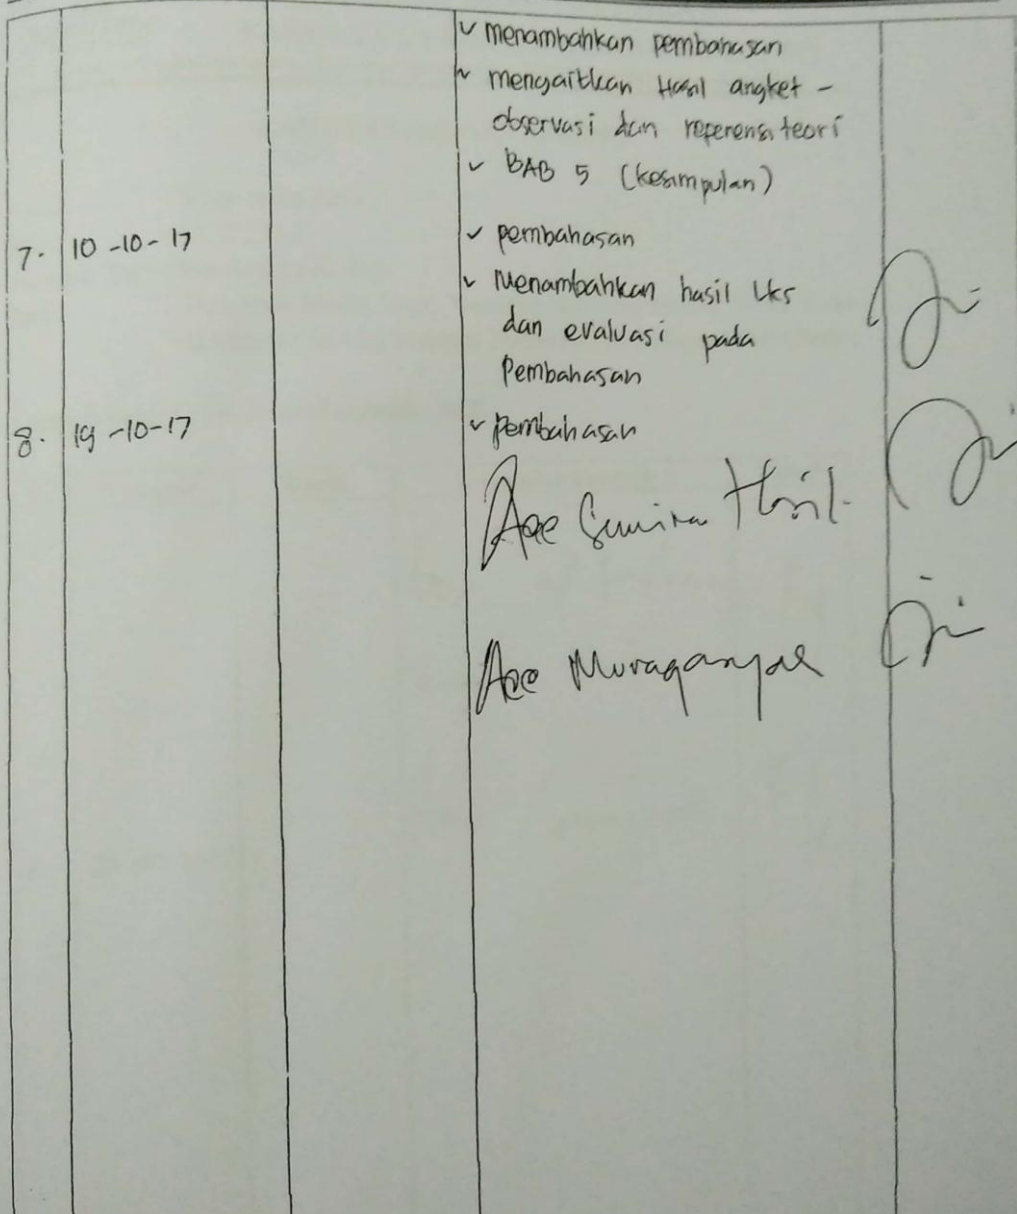 ✓ menambahkan pembahasan
✓ mengaitkan Hasil angket -
observasi dan referensi teori
✓ BAB 5 (kesimpulan)
7. 10-10-17 ✓ pembahasan
✓ Menambahkan hasil LKS
dan evaluasi pada
Pembahasan
8. 19-10-17 ✓ pembahasan
Acc Seminar Hasil.
Acc Munaqasyah